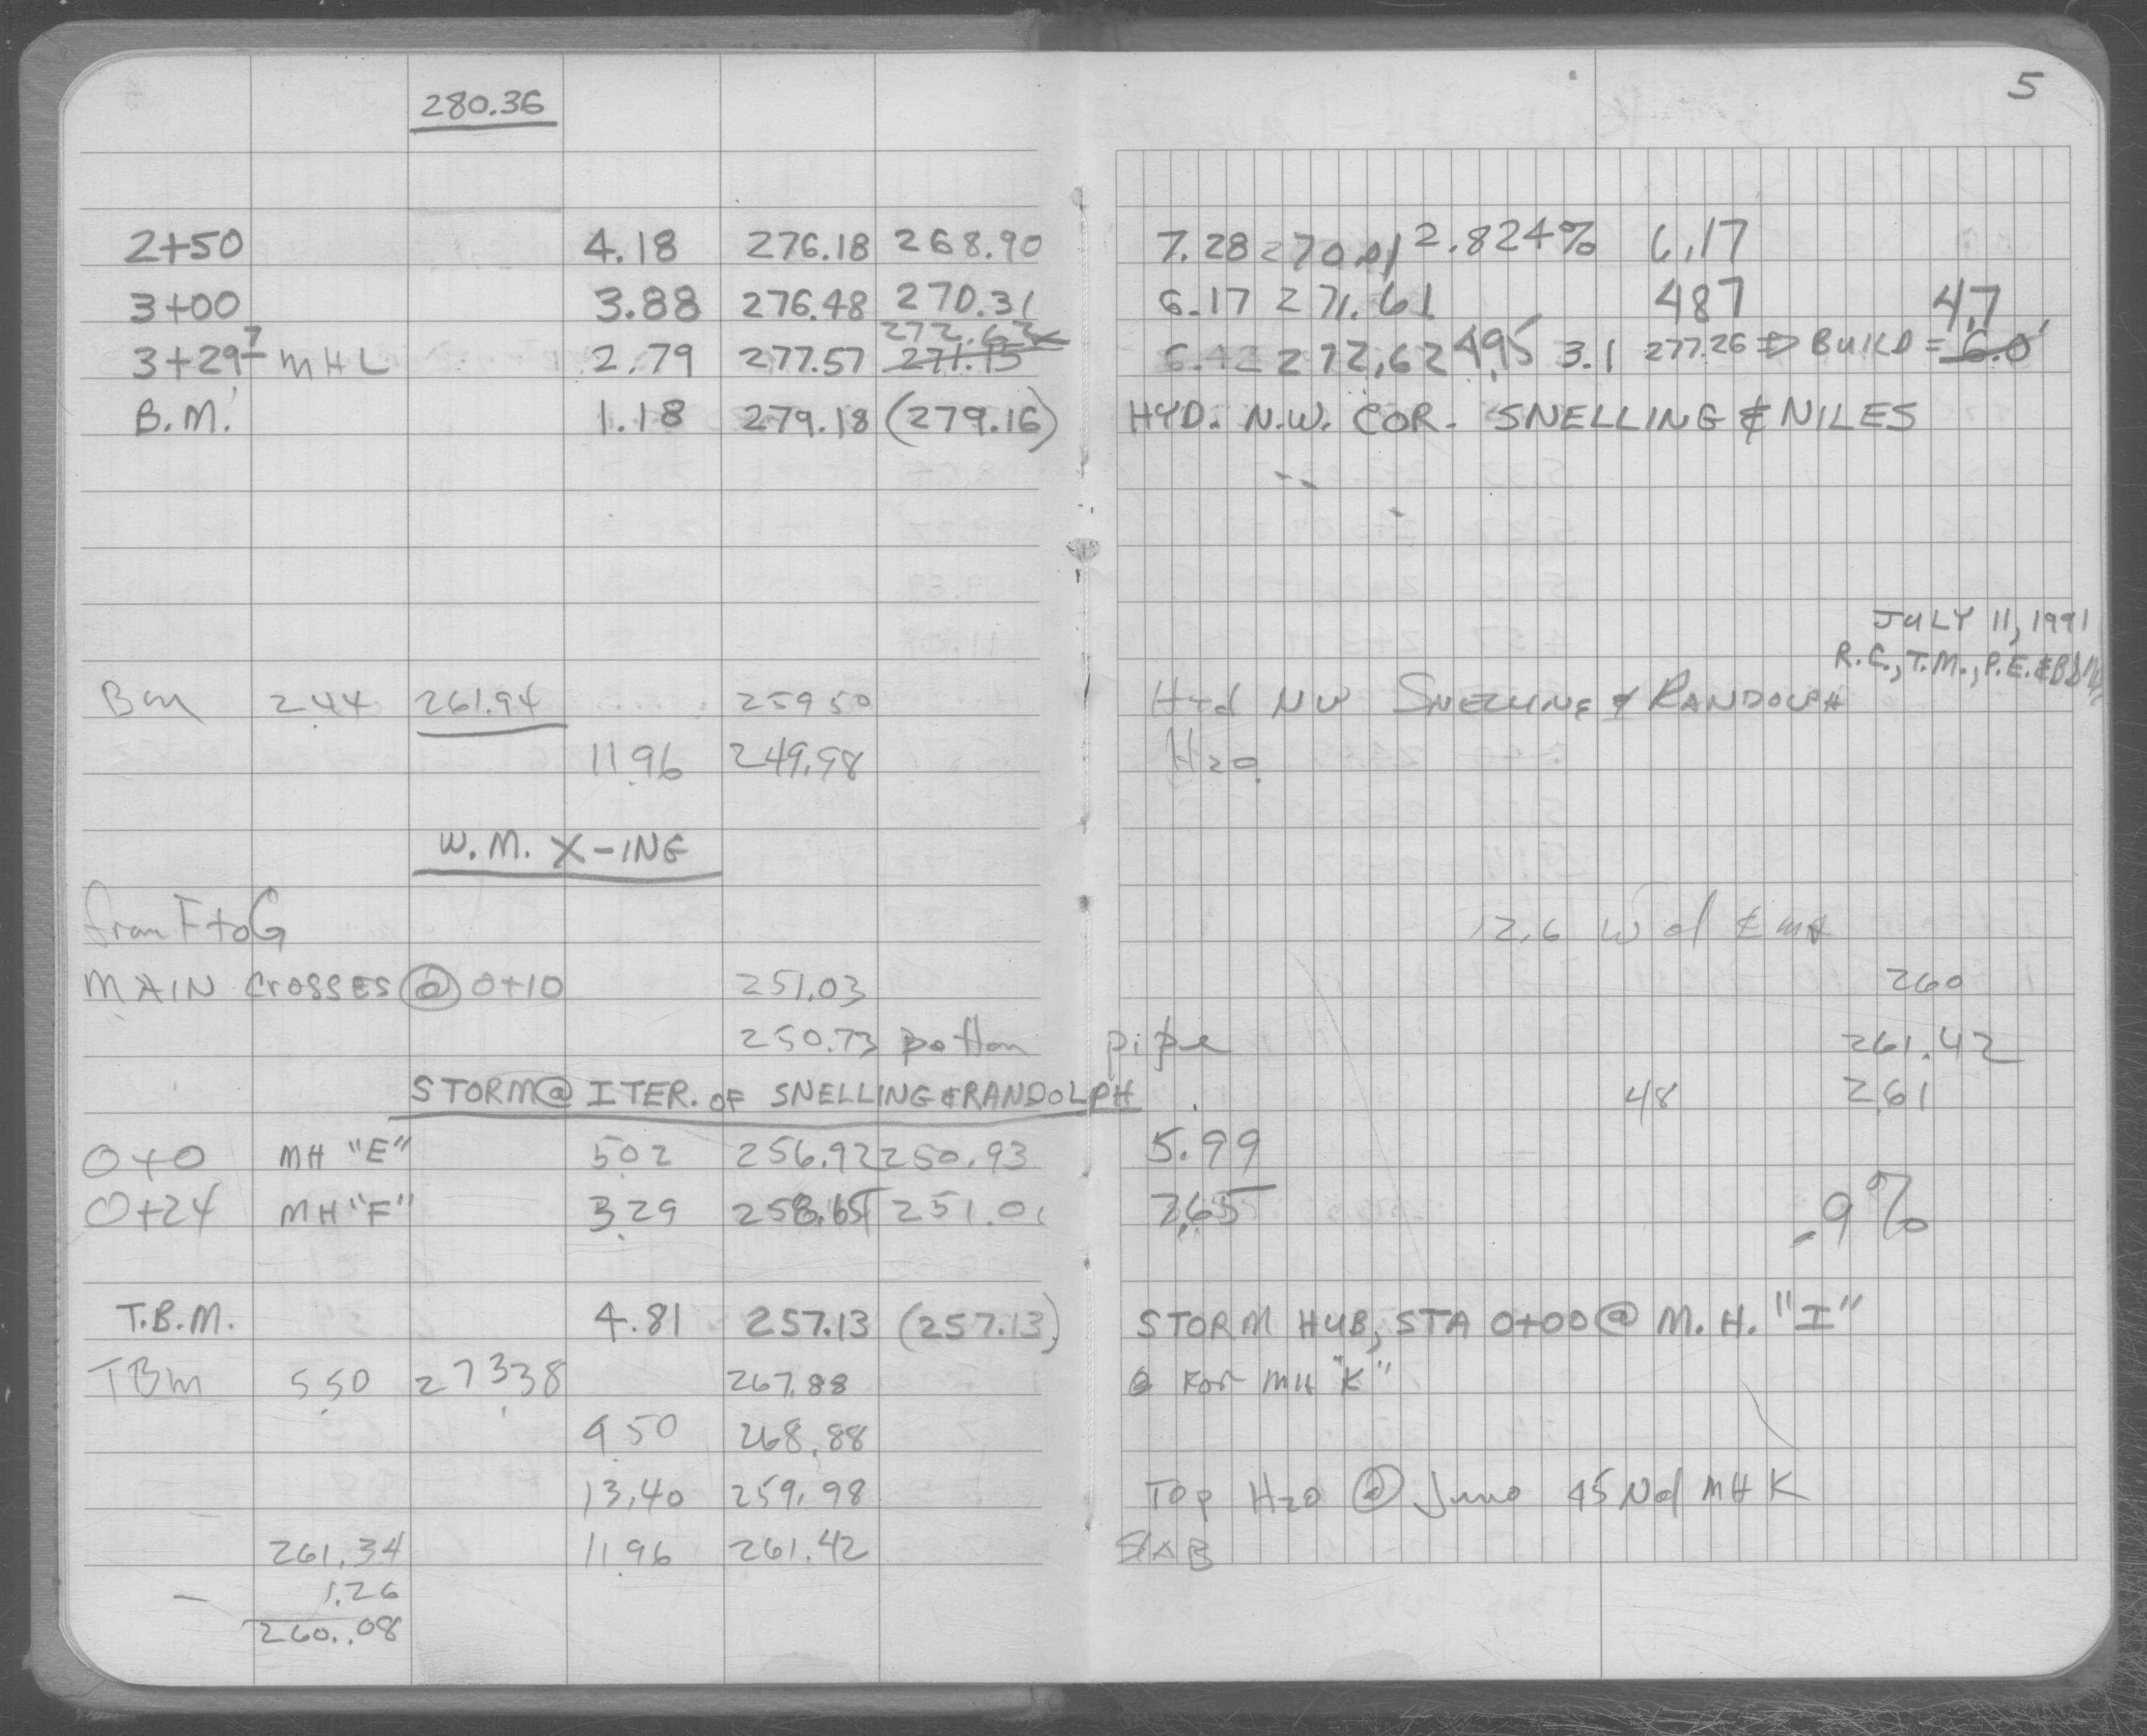 5
280.36
2+50 4.18 276.18 268.90 7.28 270.01 2.824% 6.17
3+00 3.88 276.48 270.31 6.17 271.61 487 4.7
272.62
3+29.7 MHL 2.79 277.57 271.15 6.42 272.62 4.95 3.1 277.26 ⇒ BUILD = 6.0'
B.M. 1.18 279.18 (279.16) HYD. N.W. COR. SNELLING & NILES
JULY 11, 1991
R.C., T.M., P.E. &
Bm 2.44 261.94 259.50 Hyd NW SNELLING & RANDOLPH
11.96 249.98 H2O
W.M. X-ING
from F to G 12.6 W of ¢ MH
MAIN CROSSES @ 0+10 251.03 260
250.73 bottom pipe 261.42
STORM @ ITER. OF SNELLING & RANDOLPH 48 2.61
0+0 MH "E" 5.02 256.92 250.93 5.99
0+24 MH "F" 3.29 258.65 251.01 7.65 .9%
T.B.M. 4.81 257.13 (257.13) STORM HUB, STA 0+00 @ M.H. "I"
TBm 5.50 273.38 267.88 For MH "K"
4.50 268.88
13.40 259.98 Top H2O @ Juno 45 N of MH K
261.34 11.96 261.42 SLAB
- 1.26
260.08